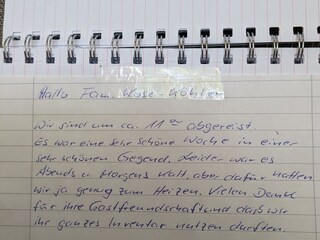 Hallo Fam. Kluse-Köhler
Wir sind um ca. 11 00 abgereist.
Es war eine sehr schöne Woche in einer
sehr schönen Gegend. Leider war es
Abends u. Morgens kalt, aber dafür hatten
wir ja genug zum Heizen. Vielen Dank
für ihre Gastfreundschaft und daß wir
ihr ganzes Inventar nutzen durften.